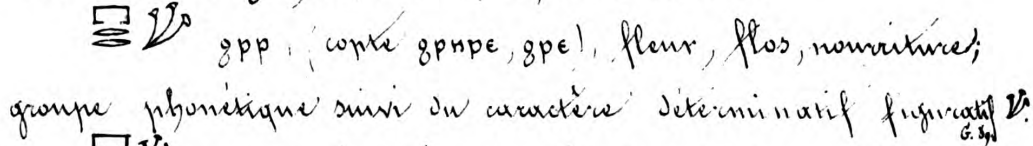 ϩⲣⲣ, (copte ϩⲣⲏⲣⲉ, ϩⲣⲉ), fleur, flos, nourriture;
groupe phonétique suivi du caractère déterminatif figuratif